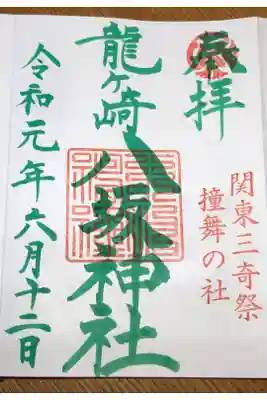 奉拝
関東三奇祭
撞舞の社
龍ヶ崎
八坂神社
令和元年六月十二日